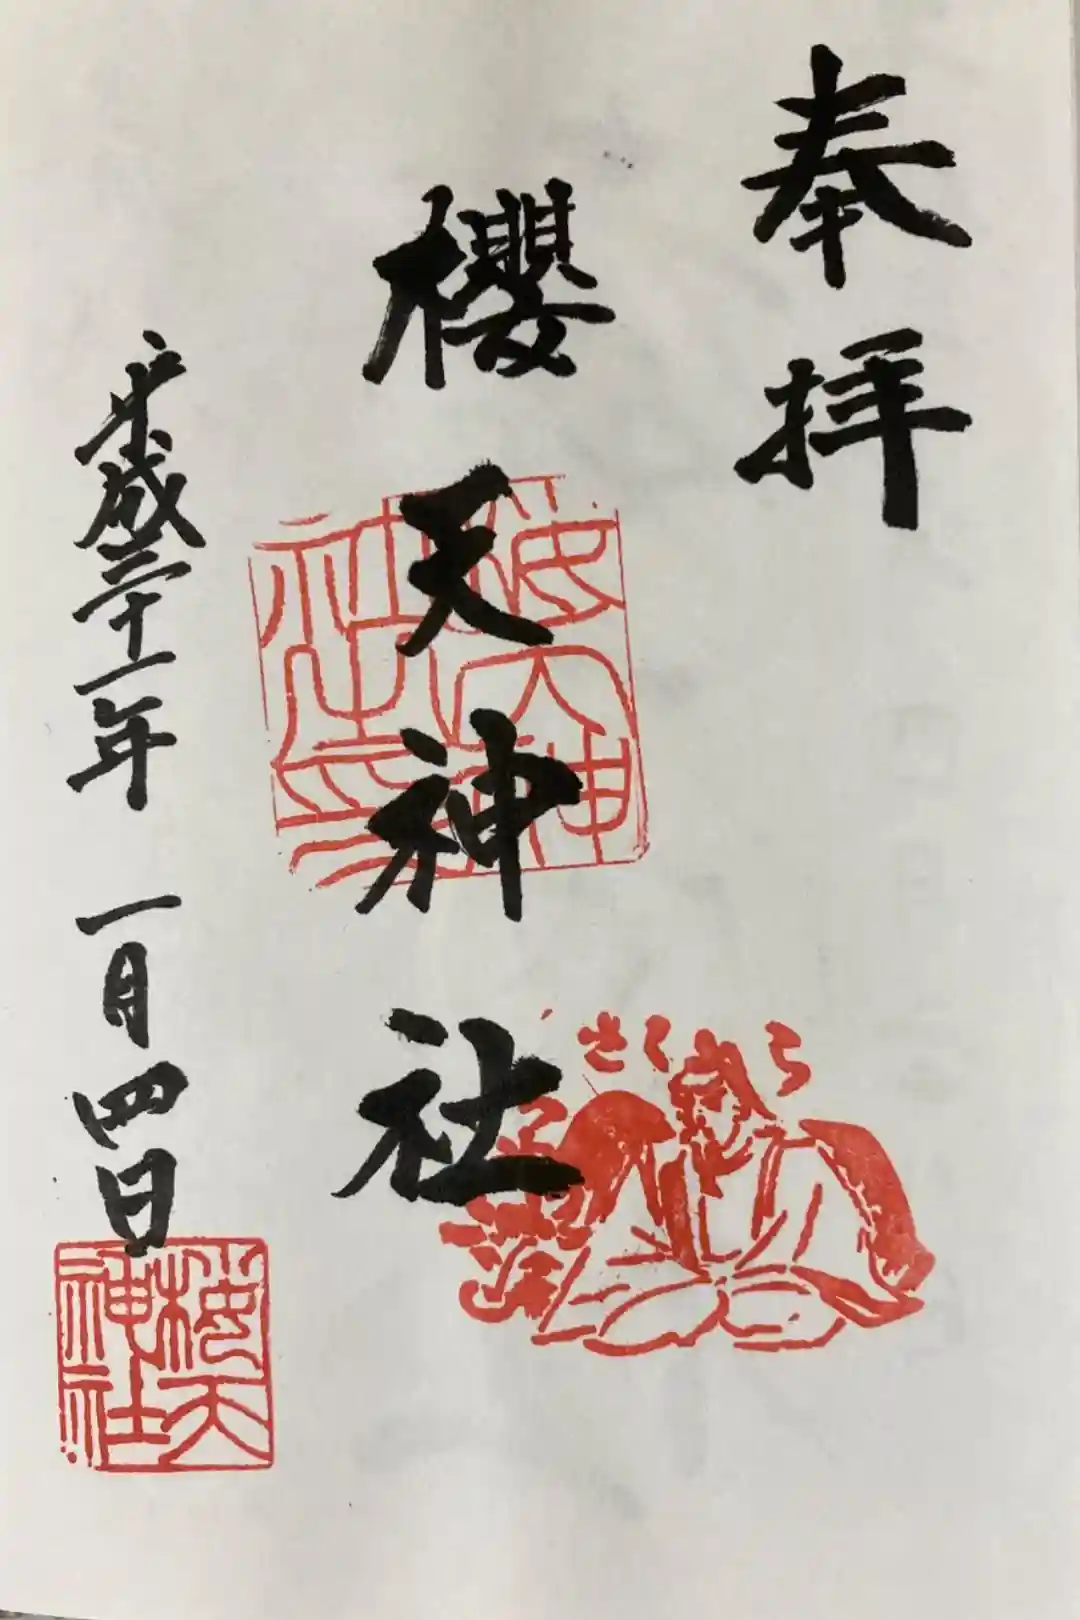 奉拝
櫻天神社
平成三十一年 一月四日
桜天神社印
さくら
桜天神社